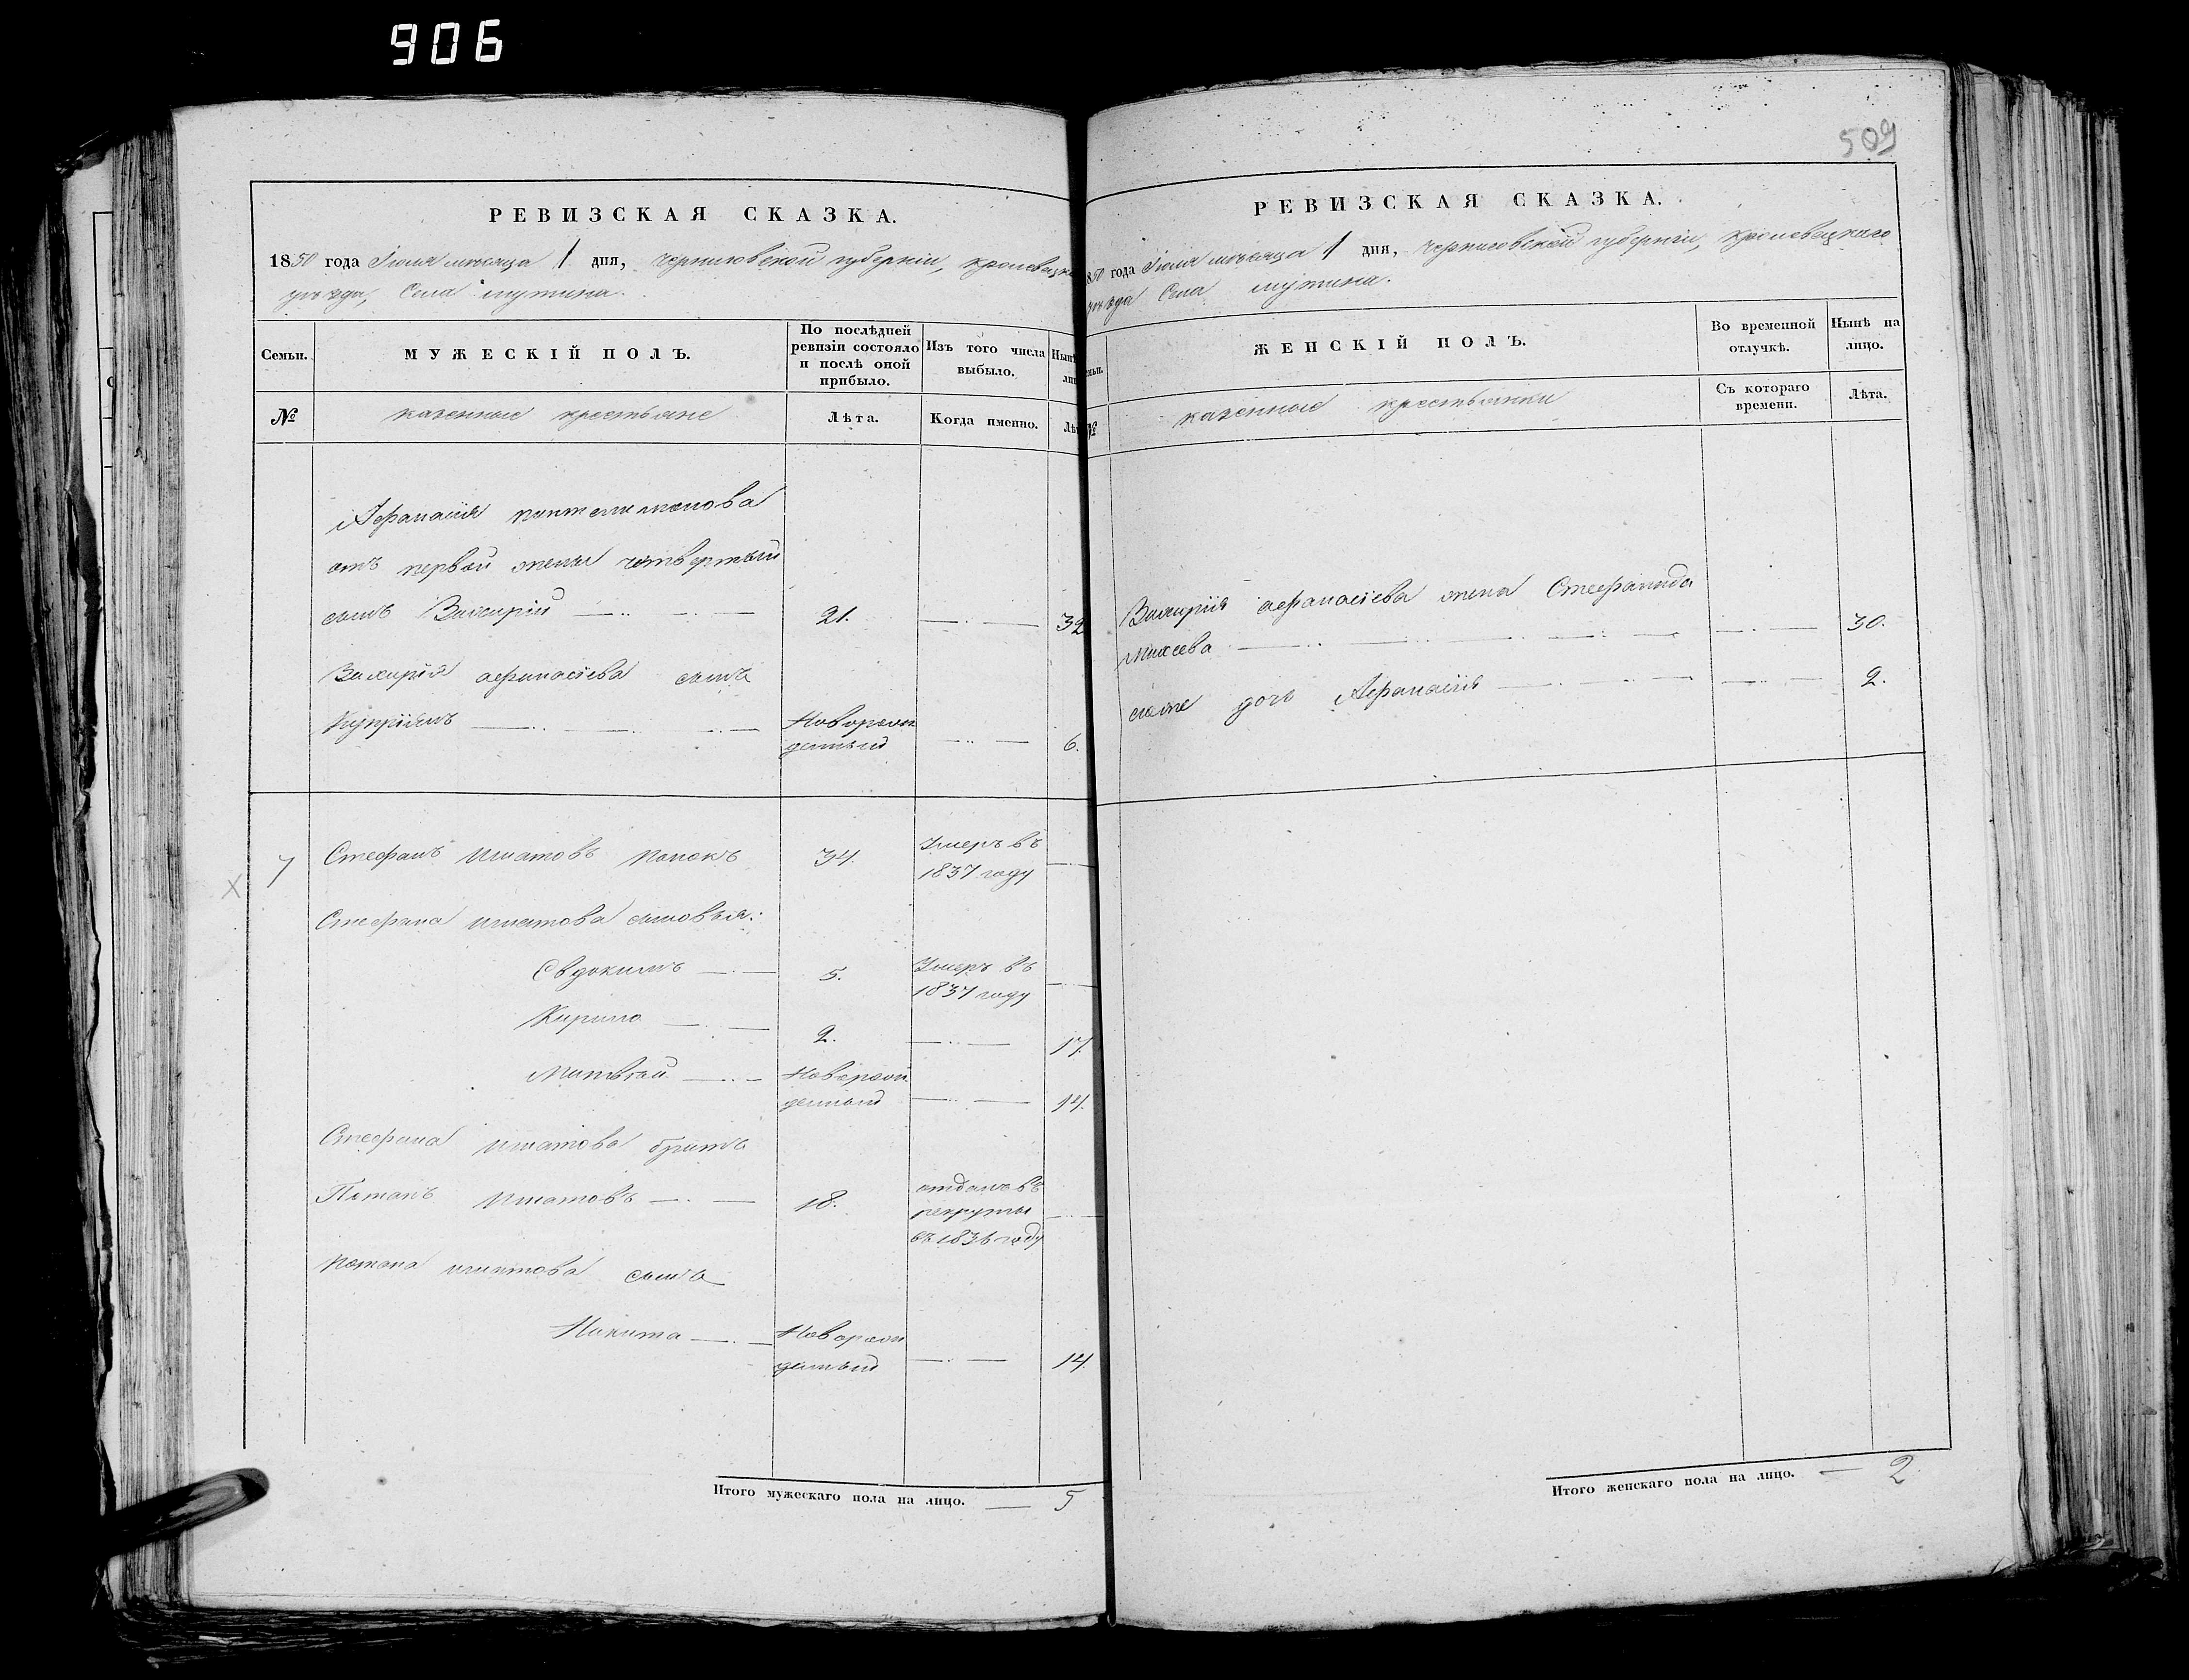 906
РЕВИЗСКАЯ СКАЗКА.
1850 года Іюля мѣсяца 1 дня, Черниговской губерніи, Кролевецка
уѣзда, Села Мутина.
Семьи.
МУЖЕСКІЙ ПОЛЪ.
По послѣдней ревизіи состояло и послѣ оной прибыло.
Изъ того числа выбыло.
№
казенные крестьяне
Лѣта.
Когда именно.
Афанасія Пантелимонова
отъ первой жены четвертый
сынъ Захарій 21. 32
Захарія Афанасіева сынъ
Купріянъ Новорож
денный 6.
7 Стефанъ Игнатовъ 34. Умеръ въ
1837 году
Стефана Игнатова сыновья:
Евдокимъ 5. Умеръ въ
1837 году
Кирило 2. 17.
Матвѣй Новорож
денный 14.
Стефана Игнатова братъ
Потапъ Игнатовъ 18. отданъ въ
рекруты
въ 1836 году
Потапа Игнатова сынъ
Никита Новорож
денный 14
Итого мужескаго пола на лицо. 5
509
РЕВИЗСКАЯ СКАЗКА.
850 года Іюля мѣсяца 1 дня, Черниговской губерніи, Кролевецкаго
уѣзда Села Мутина.
ЖЕНСКІЙ ПОЛЪ.
Во временной отлучкѣ.
Нынѣ на лицо.
№
казенные крестьянки
Съ котораго времени.
Лѣта.
Захарія Афанасіева жена Стефанида
Михеева 30.
ихже дочь Афанасія 2.
Итого женскаго пола на лицо. 2